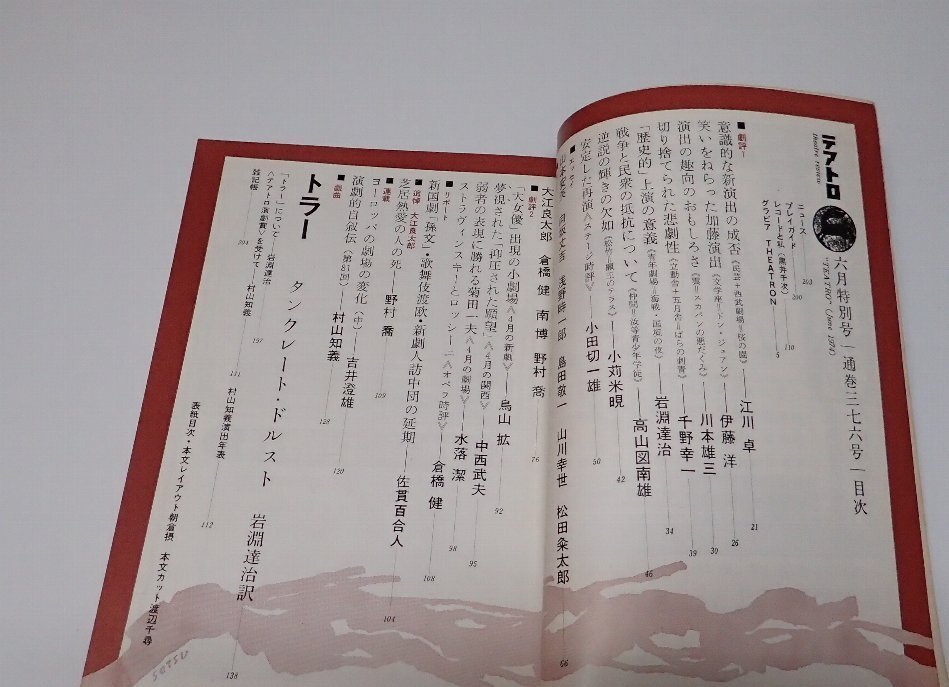 テアトロ
theatre review
六月特別号―通巻三七六号―目次
"TEATRO" (June 1974)
ニュース 203
プレイガイド 200
レコードと私(黒井千次) 110
グラビア THEATRON 5
■劇評1
意識的な新演出の成否《民芸+西武劇場=桜の園》―江川 卓 21
笑いをねらった加藤演出《文学座=ドン・ジュアン》―伊藤 洋 26
演出の趣向のおもしろさ《雲=スカパンの悪だくみ》―川本雄三 30
切り捨てられた悲劇性《立動舎+五月舎=ばらの刺青》―千野幸一 39
「歴史的」上演の意義《青年劇場=海戦・国境の夜》―岩淵達治 34
戦争と民衆の抵抗について《仲間=汝等青少年学徒》―高山図南雄 46
逆説の輝きの欠如―小苅米晛 42
安定した再演《ステージ時評》―小田切一雄 50
浅野時一郎 島田敬一 山川幸世 松田粂太郎 66
大江良太郎 倉橋 健 南 博 野村 喬 76
■劇評2
「大女優」出現の小劇場《4月の新劇》―鳥山 拡 92
夢視された「抑圧された願望」《4月の関西》―中西武夫 95
弱者の表現に勝れる菊田一夫《4月の劇場》―水落 潔 98
ストラヴィンスキーとロッシーニ《オペラ時評》―倉橋 健 108
■リポート
新国劇「孫文」・歌舞伎渡欧・新劇人訪中団の延期―佐貫百合人 104
■追悼 大江良太郎
芝居熱愛の人の死―野村 喬 109
■連載
ヨーロッパの劇場の変化(中)―吉井澄雄 120
演劇的自叙伝(第81回)―村山知義 128
■戯曲
トラー タンクレート・ドルスト 岩淵達治訳 138
「トラー」について―岩淵達治 197
《テアトロ演劇賞》を受けて―村山知義 111
雑記帳 204
村山知義演出年表 112
表紙目次・本文レイアウト朝倉摂 本文カット渡辺千尋